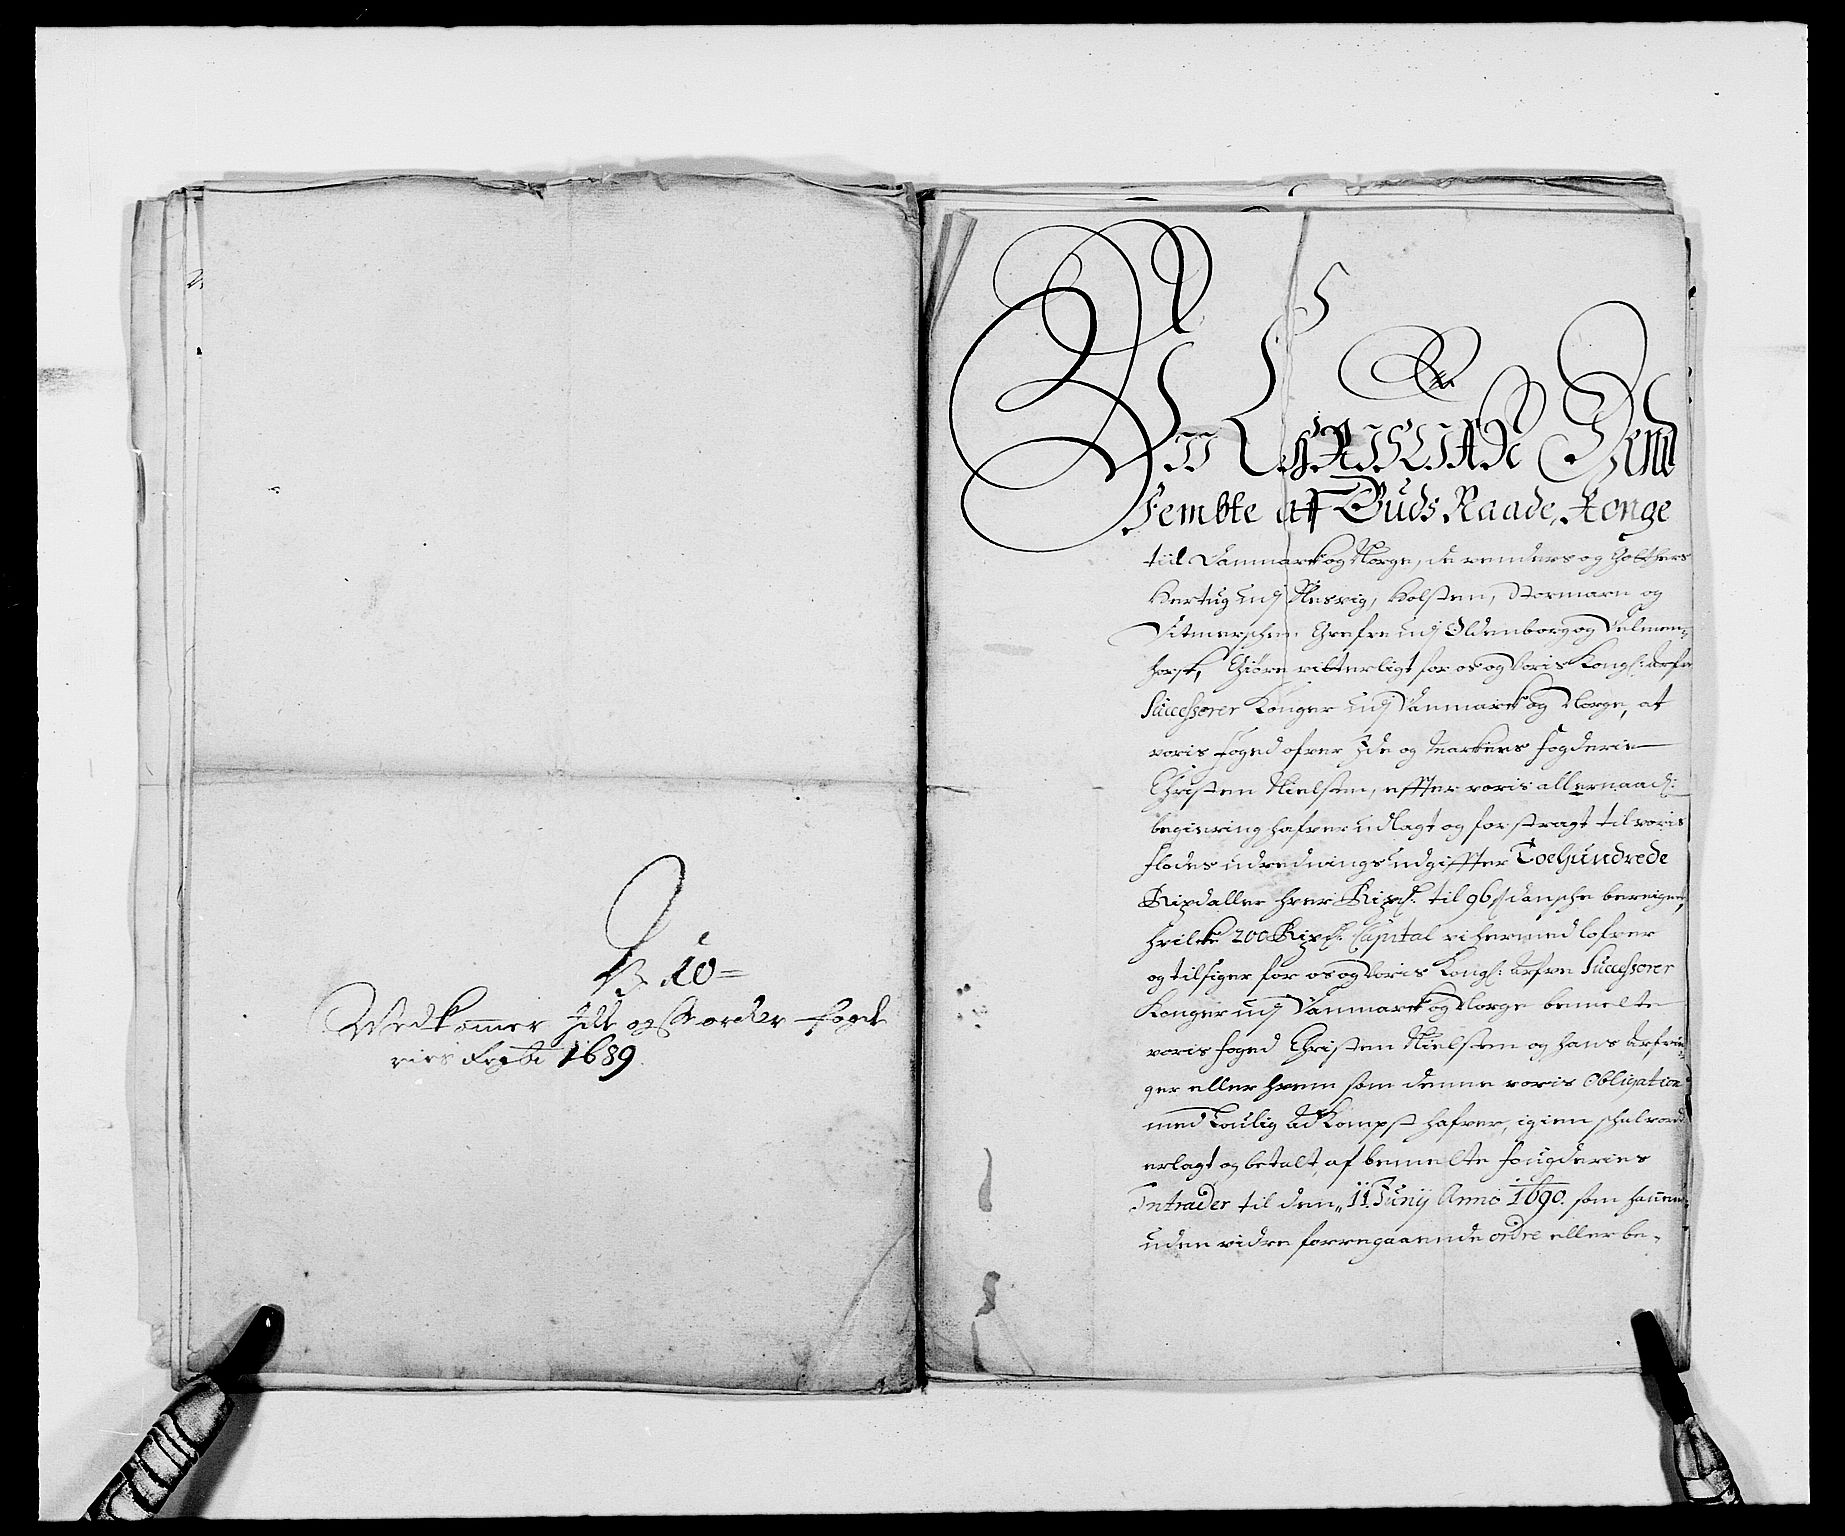 No 10
Vedkommer Ide og Marcker fogde
ries 1689
5
Vii CHRISTIAN Dend
Fembte aff Guds Naade, Konge
tiil Danmarck og Norge, de venders og Gotthers
Hertug udj Slesvig, Holsten, Stormarn og
Ditmerschen Grefve udj Oldenborg og Delmen-
horst, Giøre vitterligt for os og Voris Kongl: arfve
Successorer Konger udj Danmarck og Norge, at
voris foged ofver Ide og Markers fogderie
Christen Nielsen, effter voris allernaad:
begiering hafver udlagt og forstragt til voris
flodes udrednings udgiffter Toehundrede
Rixdaller hver Rixd: til 96 s danske beregnet,
hvilcke 200 Rixd: Capital vi hermed lofver
og tilsiger for os og Voris Kongl: arfve Successorer
Konger udj Danmarck og Norge bemelte
voris foged Christen Nielsen og hans arfvin-
ger eller hvem som denne voris Obligation
med Loulig adkompst hafver, igien schal vorde
erlagt og betalt, af bemelte fougderies
Intrader til den 11 Junij Anno 1690. som hannem
uden vidre forregaaende ordre eller be-